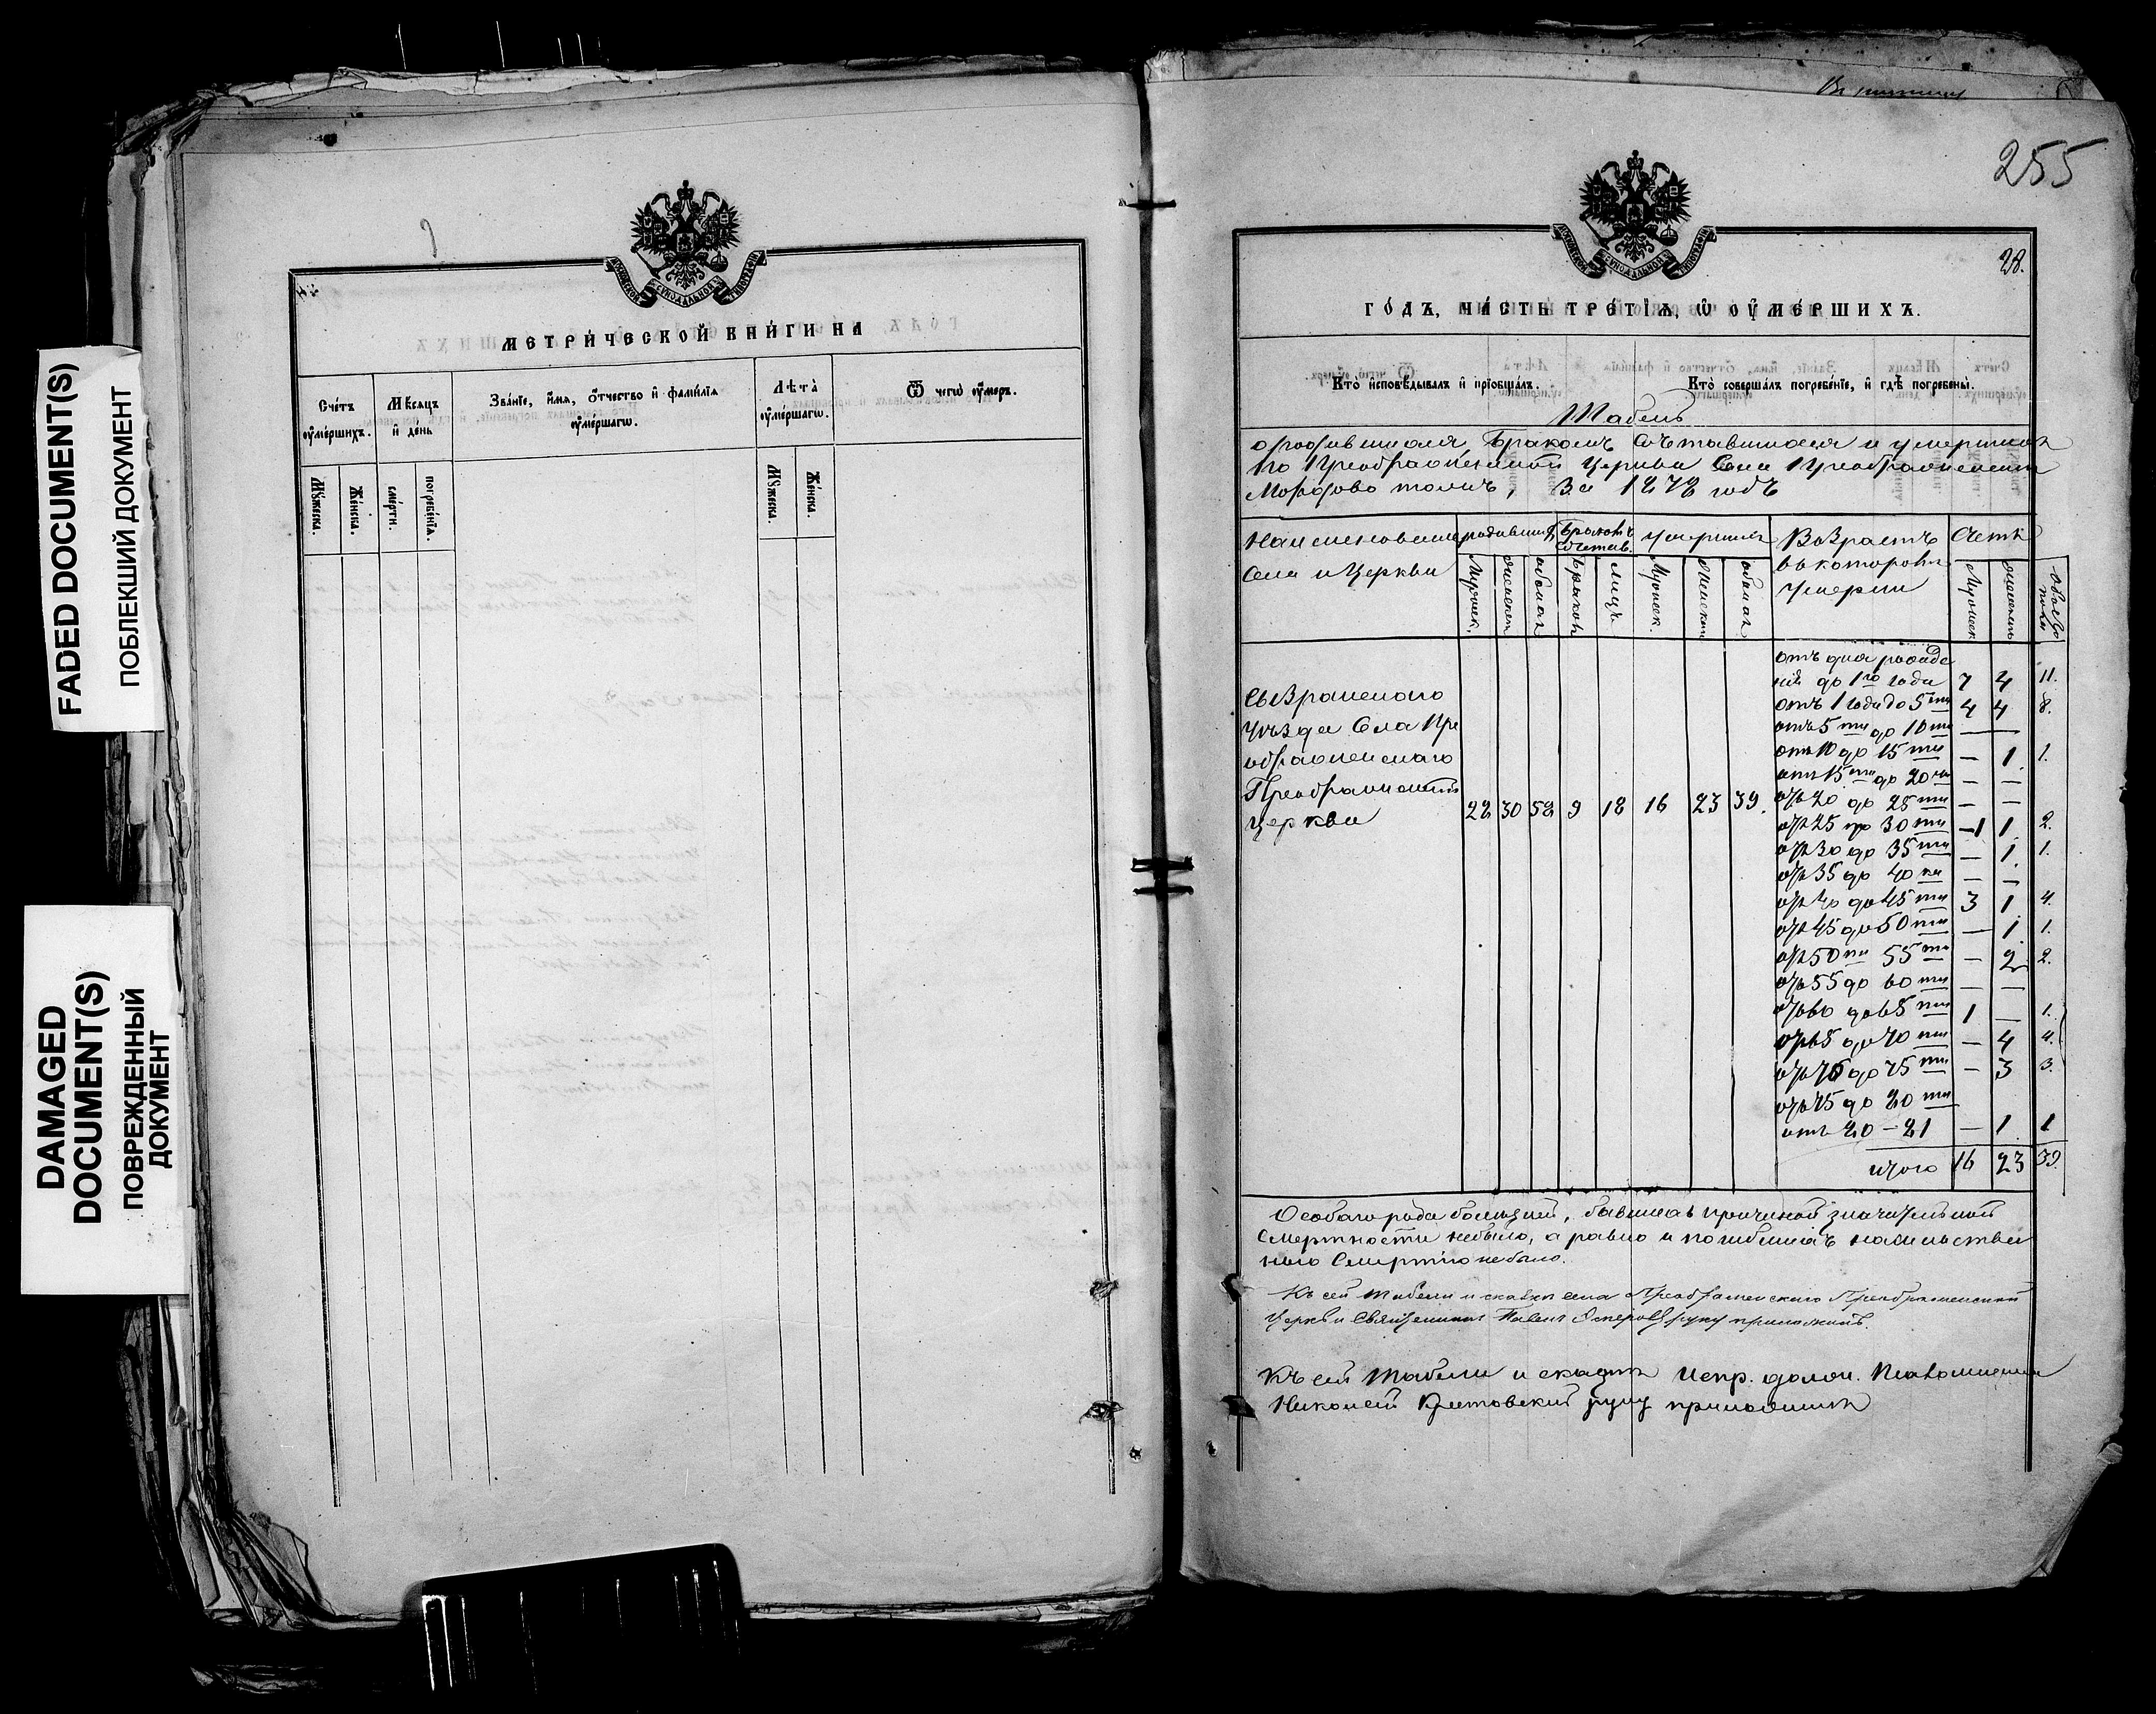 FADED DOCUMENT(S)
ПОБЛЕКШИЙ ДОКУМЕНТ
DAMAGED
DOCUMENT(S)
ПОВРЕЖДЕННЫЙ
ДОКУМЕНТ
МЕТРИ́ЧЕСКОЙ КНИ́ГИ НА
Сче́тъ оумершихъ.
Мѣсяцъ и день
Зва́нїе, и́мя, о́тчество и фами́лїя оуме́ршагѡ.
Лѣта̀ оуме́ршагѡ.
Ѿ чегѡ̀ оу́меръ.
Му́жеска.
Же́нска.
сме́рти.
погребе́нїя.
Му́жеска.
Же́нска.
255
28.
ГО́ДЪ, ЧА́СТЬ ТРЕ́ТЇѦ, Ѡ ОУМЕ́РШИХЪ.
Кто̀ исповѣ́дывалъ и прїобща́лъ.
Кто̀ соверша́лъ погребе́нїе, и гдѣ̀ погребены̀.
Табель
о родившихся, бракомъ сочетавшихся и умершихъ
по Преображенской церкви села Преображенска
тожъ, За 1878 годъ
Наименованіе родивших Браковъ сочетав. умерших Возрастъ Счетъ
села и Церкви
въ которомъ
умерли
Мужеск. женскаго обоихъ браков лицъ Мужеск. женскаго обоихъ Мужеск женскаго обоего пола
Сызранскаго
уѣзда Села Пре
ображенскаго
Преображенской
церкви
22 30 52 9 18 16 23 39.
отъ дня рожде
нія до 1го года 7 4 11.
отъ 1 года до 5ти 4 4 8.
отъ 5ти до 10ти — —
отъ 10 до 15ти — 1. 1.
отъ 15ти до 20ти — —
отъ 20 до 25ти — —
отъ 25 до 30ти —1 1. 2.
отъ 30 до 35ти — 1. 1.
отъ 35 до 40ка — —
отъ 40 до 45ти 3 1. 4.
отъ 45 до 50ти — 1. 1.
отъ 50ти 55ти — 2. 2.
отъ 55 до 60ти — —
отъ 60 до 65ти 1 — 1.
отъ 65 до 70ти — 4 4.
отъ 70 до 75ти — 3 3.
отъ 75 до 80ти
отъ 80 — 81 — 1. 1
итого 16 23 39.
Особаго рода болѣзней, бывшихъ причиной значительной
смертности небыло, а равно и погибшихъ насильствен
ною смертію небыло.
Къ сей табели и сказкѣ села Преображенскаго Преображенской
церкви Священникъ Павелъ руку приложилъ.
Къ сей табели и сказкѣ испр. долж. Псаломщика
Николай руку приложилъ